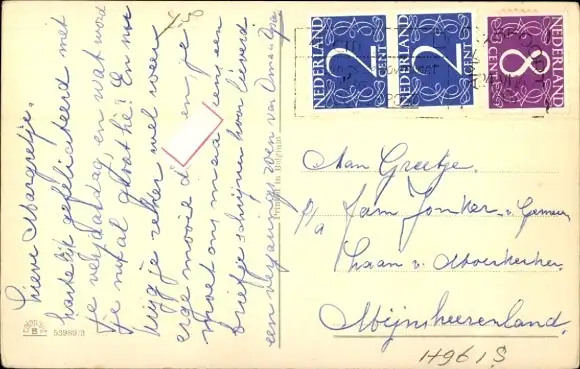 Lieve Margretje.
hartelijk gefeliciteerd met
je verjaardag en wat word
je nu al groot hè! En nu
krijg je zeker wel weer
erge mooie en je
moet ons maar eens een
briefje schrijven hoor lieverd
een verjaringszoen van Oma en Opa
4.50
NEDERLAND
2
CENT
NEDERLAND
2
CENT
NEDERLAND
8
CENT
Aan Greetje.
p/a Jam Jonker - v.
Laan v. Moerkerken
Mijnsheerenland.
H961S
B
53989/3